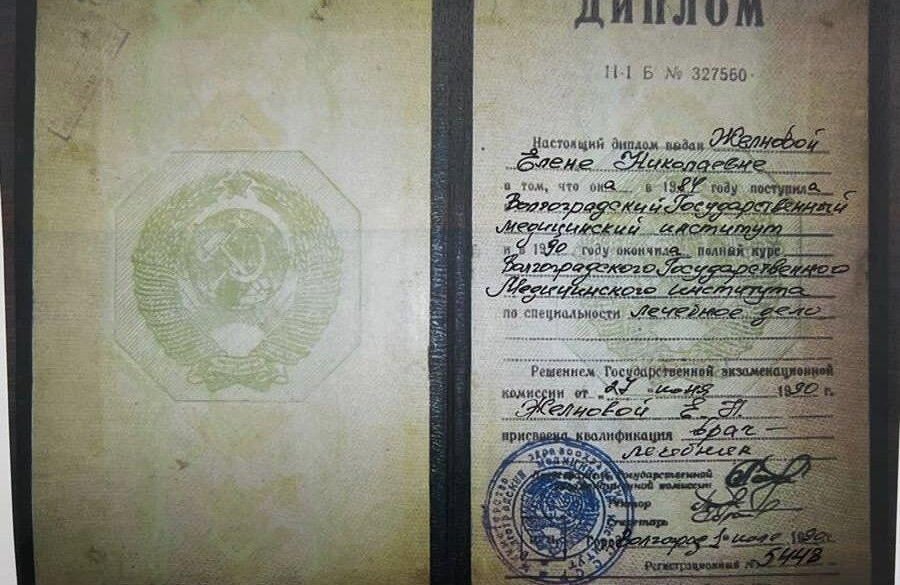 ДИПЛОМ
Н-I Б № 327560
Настоящий диплом выдан Желновой
Елене Николаевне
в том, что она в 1984 году поступила
Волгоградский Государственный
медицинский институт
и в 1990 году окончила полный курс
Волгоградского Государственного
Медицинского института
по специальности лечебное дело
Решением Государственной экзаменационной
комиссии от "27" июня 1990 г.
Желновой Е. Н.
присвоена квалификация врач-
лечебник
Государственной
комиссии
Ректор
Секретарь
Город Волгоград июля 1990
Регистрационный № 5448